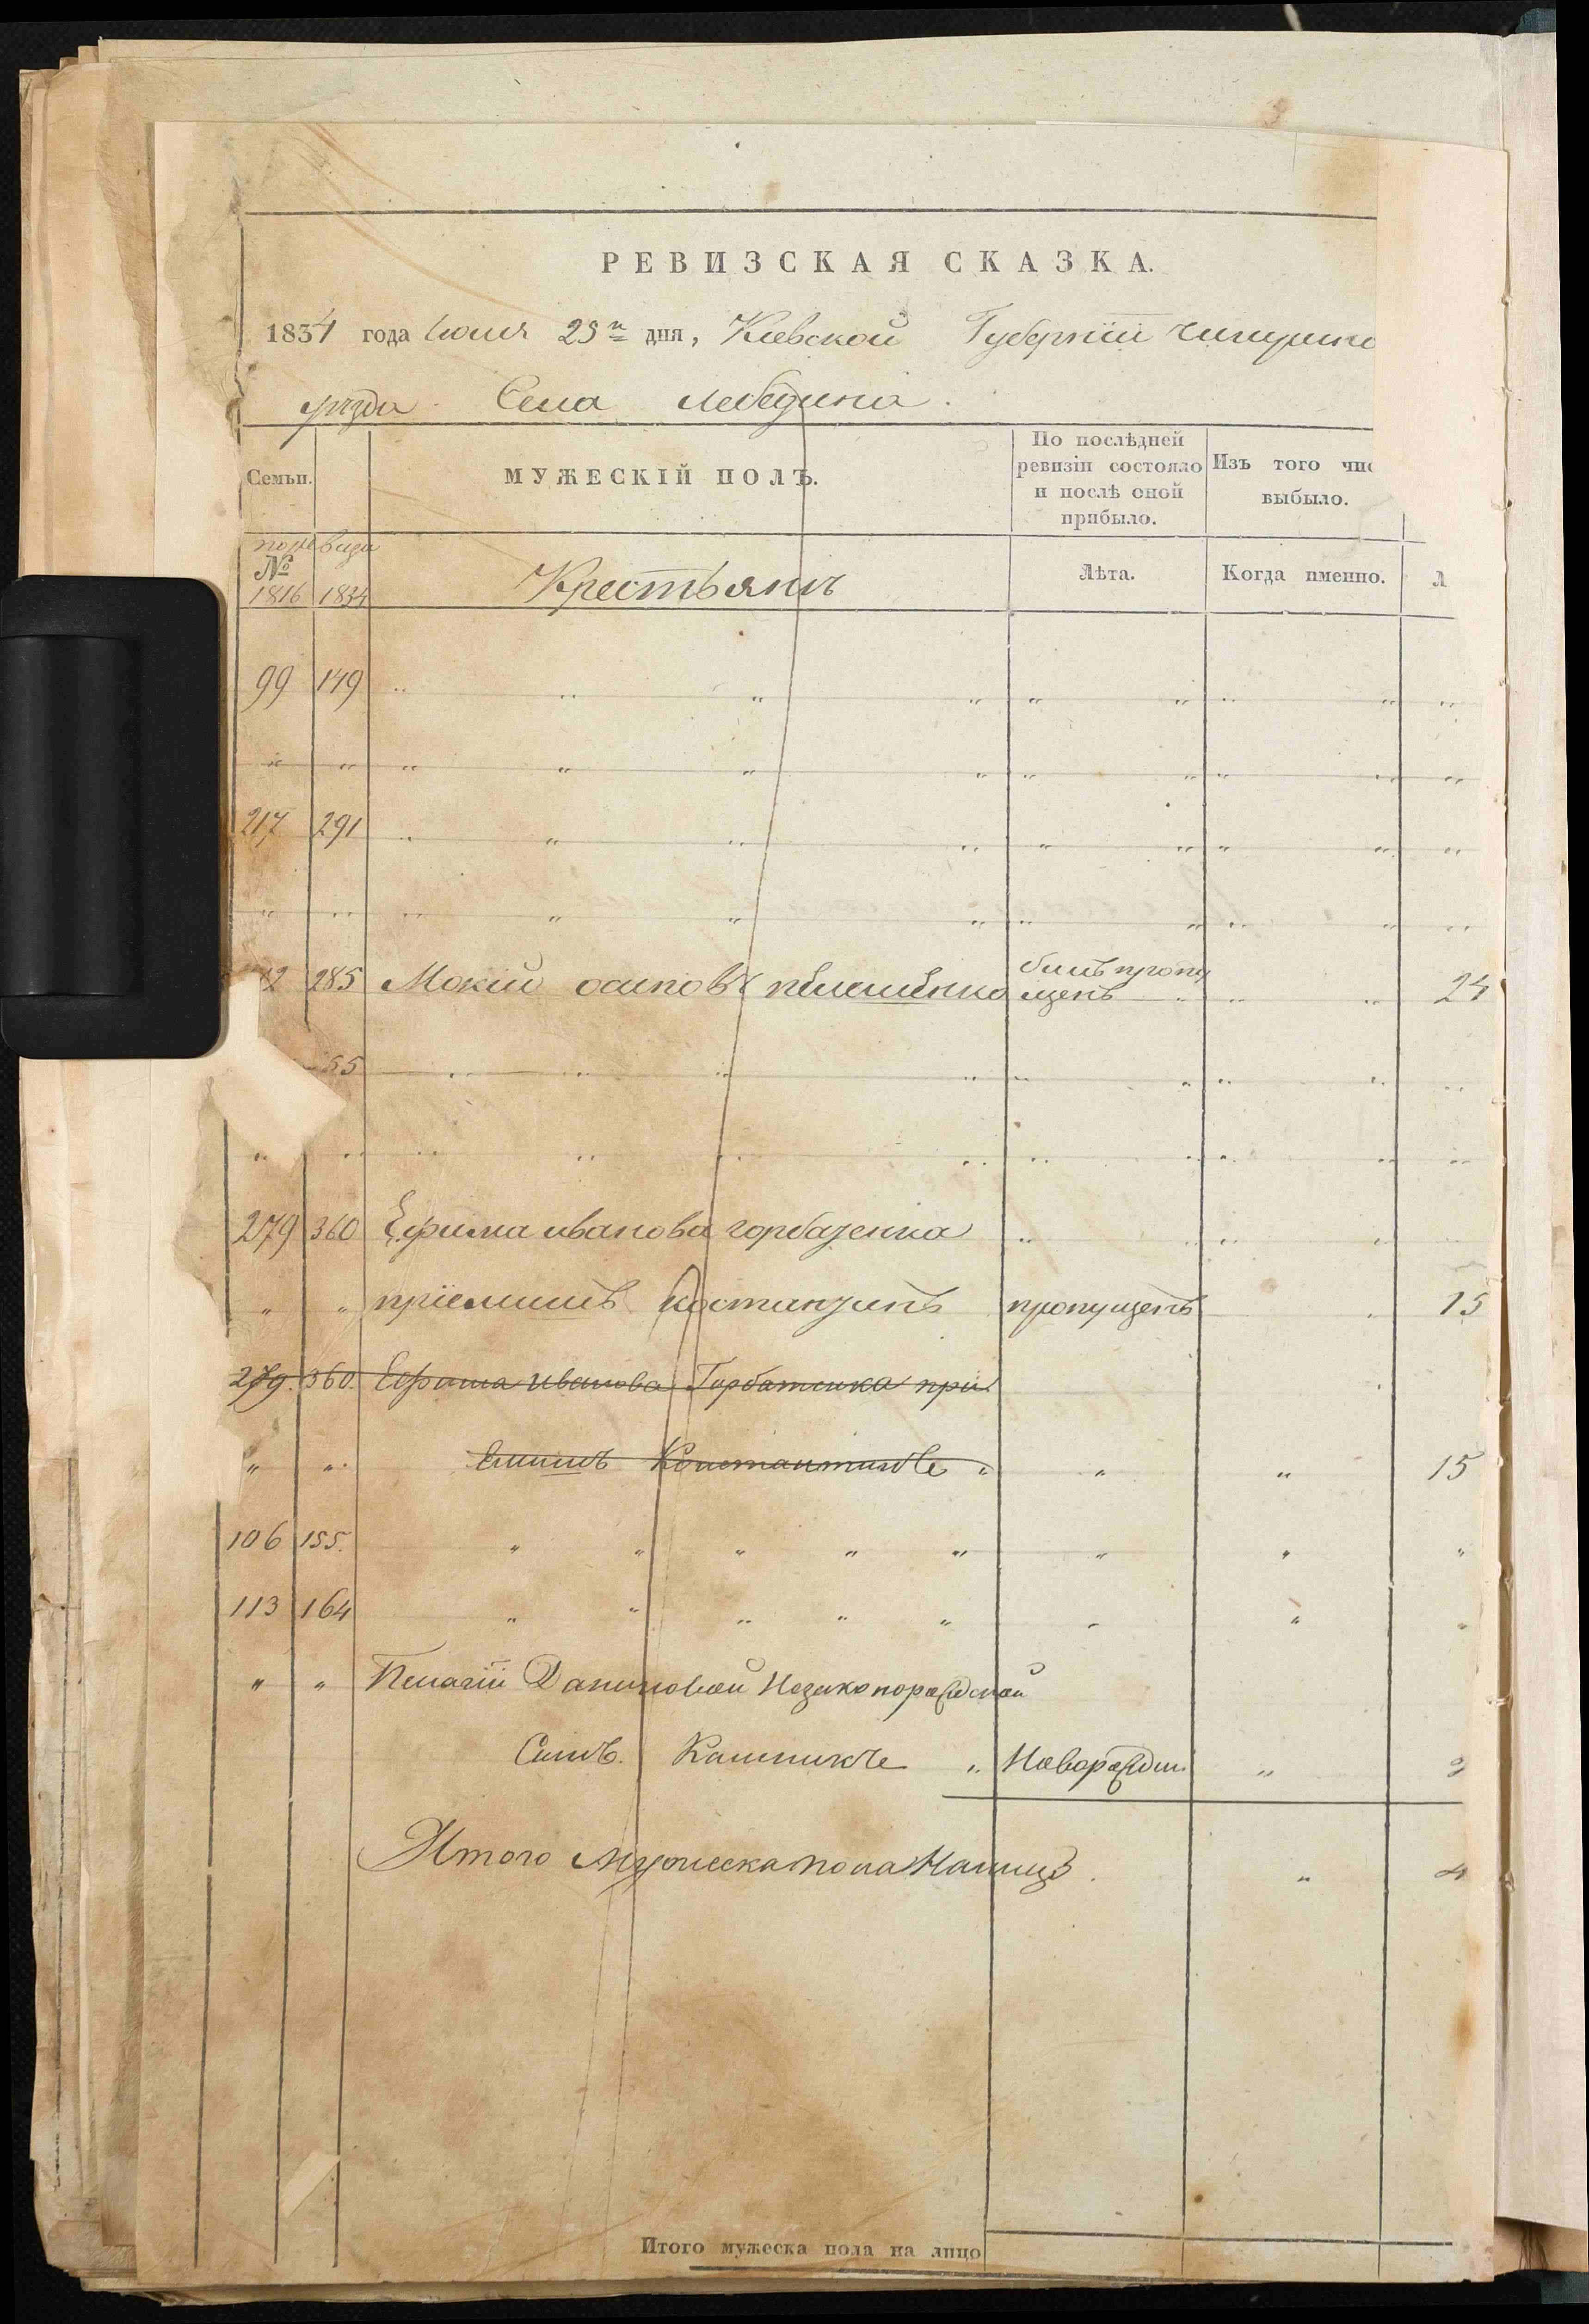 РЕВИЗСКАЯ СКАЗКА.
1834 года Июня 25го дня, Киевской Губерніи Чигиринс
уѣзда Села Лебедина.
Семьи.
МУЖЕСКІЙ ПОЛЪ.
По послѣдней ревизіи состояло и послѣ оной прибыло.
Изъ того чис выбыло.
по ревизи
№
1816 1834
Крестьянъ
Лѣта.
Когда именно.
Л
99 149 " " " " " " " " "
" " " " " " " " " " "
217 291 " " " " " " " " "
" " " " " " " " " " "
2 285 Мокій осиповъ билъ пропу
щенъ " " " 24
55 " " " " " " " " "
" " " " " " " " " " "
279 360 Ефима иванова горбаченка " " " "
" " пріемишъ костанчинъ пропущенъ " 15
279. 360. Ефима Иванова Горбатенка при
" " емишъ Константинъ " " " 15
106 155. " " " " " " " "
113 164 " " " " " " " "
" " Пелагіи Даниловой Незаконорождской
Синъ. Калиникъ " Новорожден. " 3
Итого мужеска пола Налицо. " 4
Итого мужеска пола на лицо